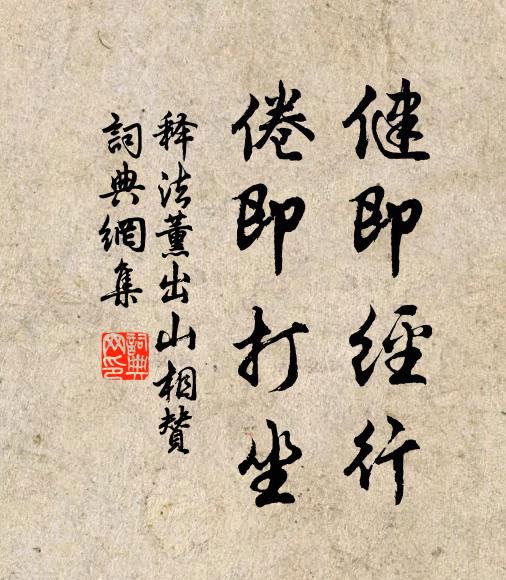 健即經行
倦即打坐
释法薰出山相赞
詞典網集
詞典網印